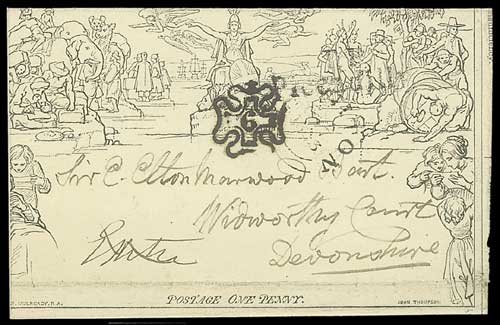 6
No
Sir C. Elton Marwood Bart.
Widworthy Court
Devonshire
W. MULREADY, R.A.
POSTAGE ONE PENNY.
JOHN THOMPSON